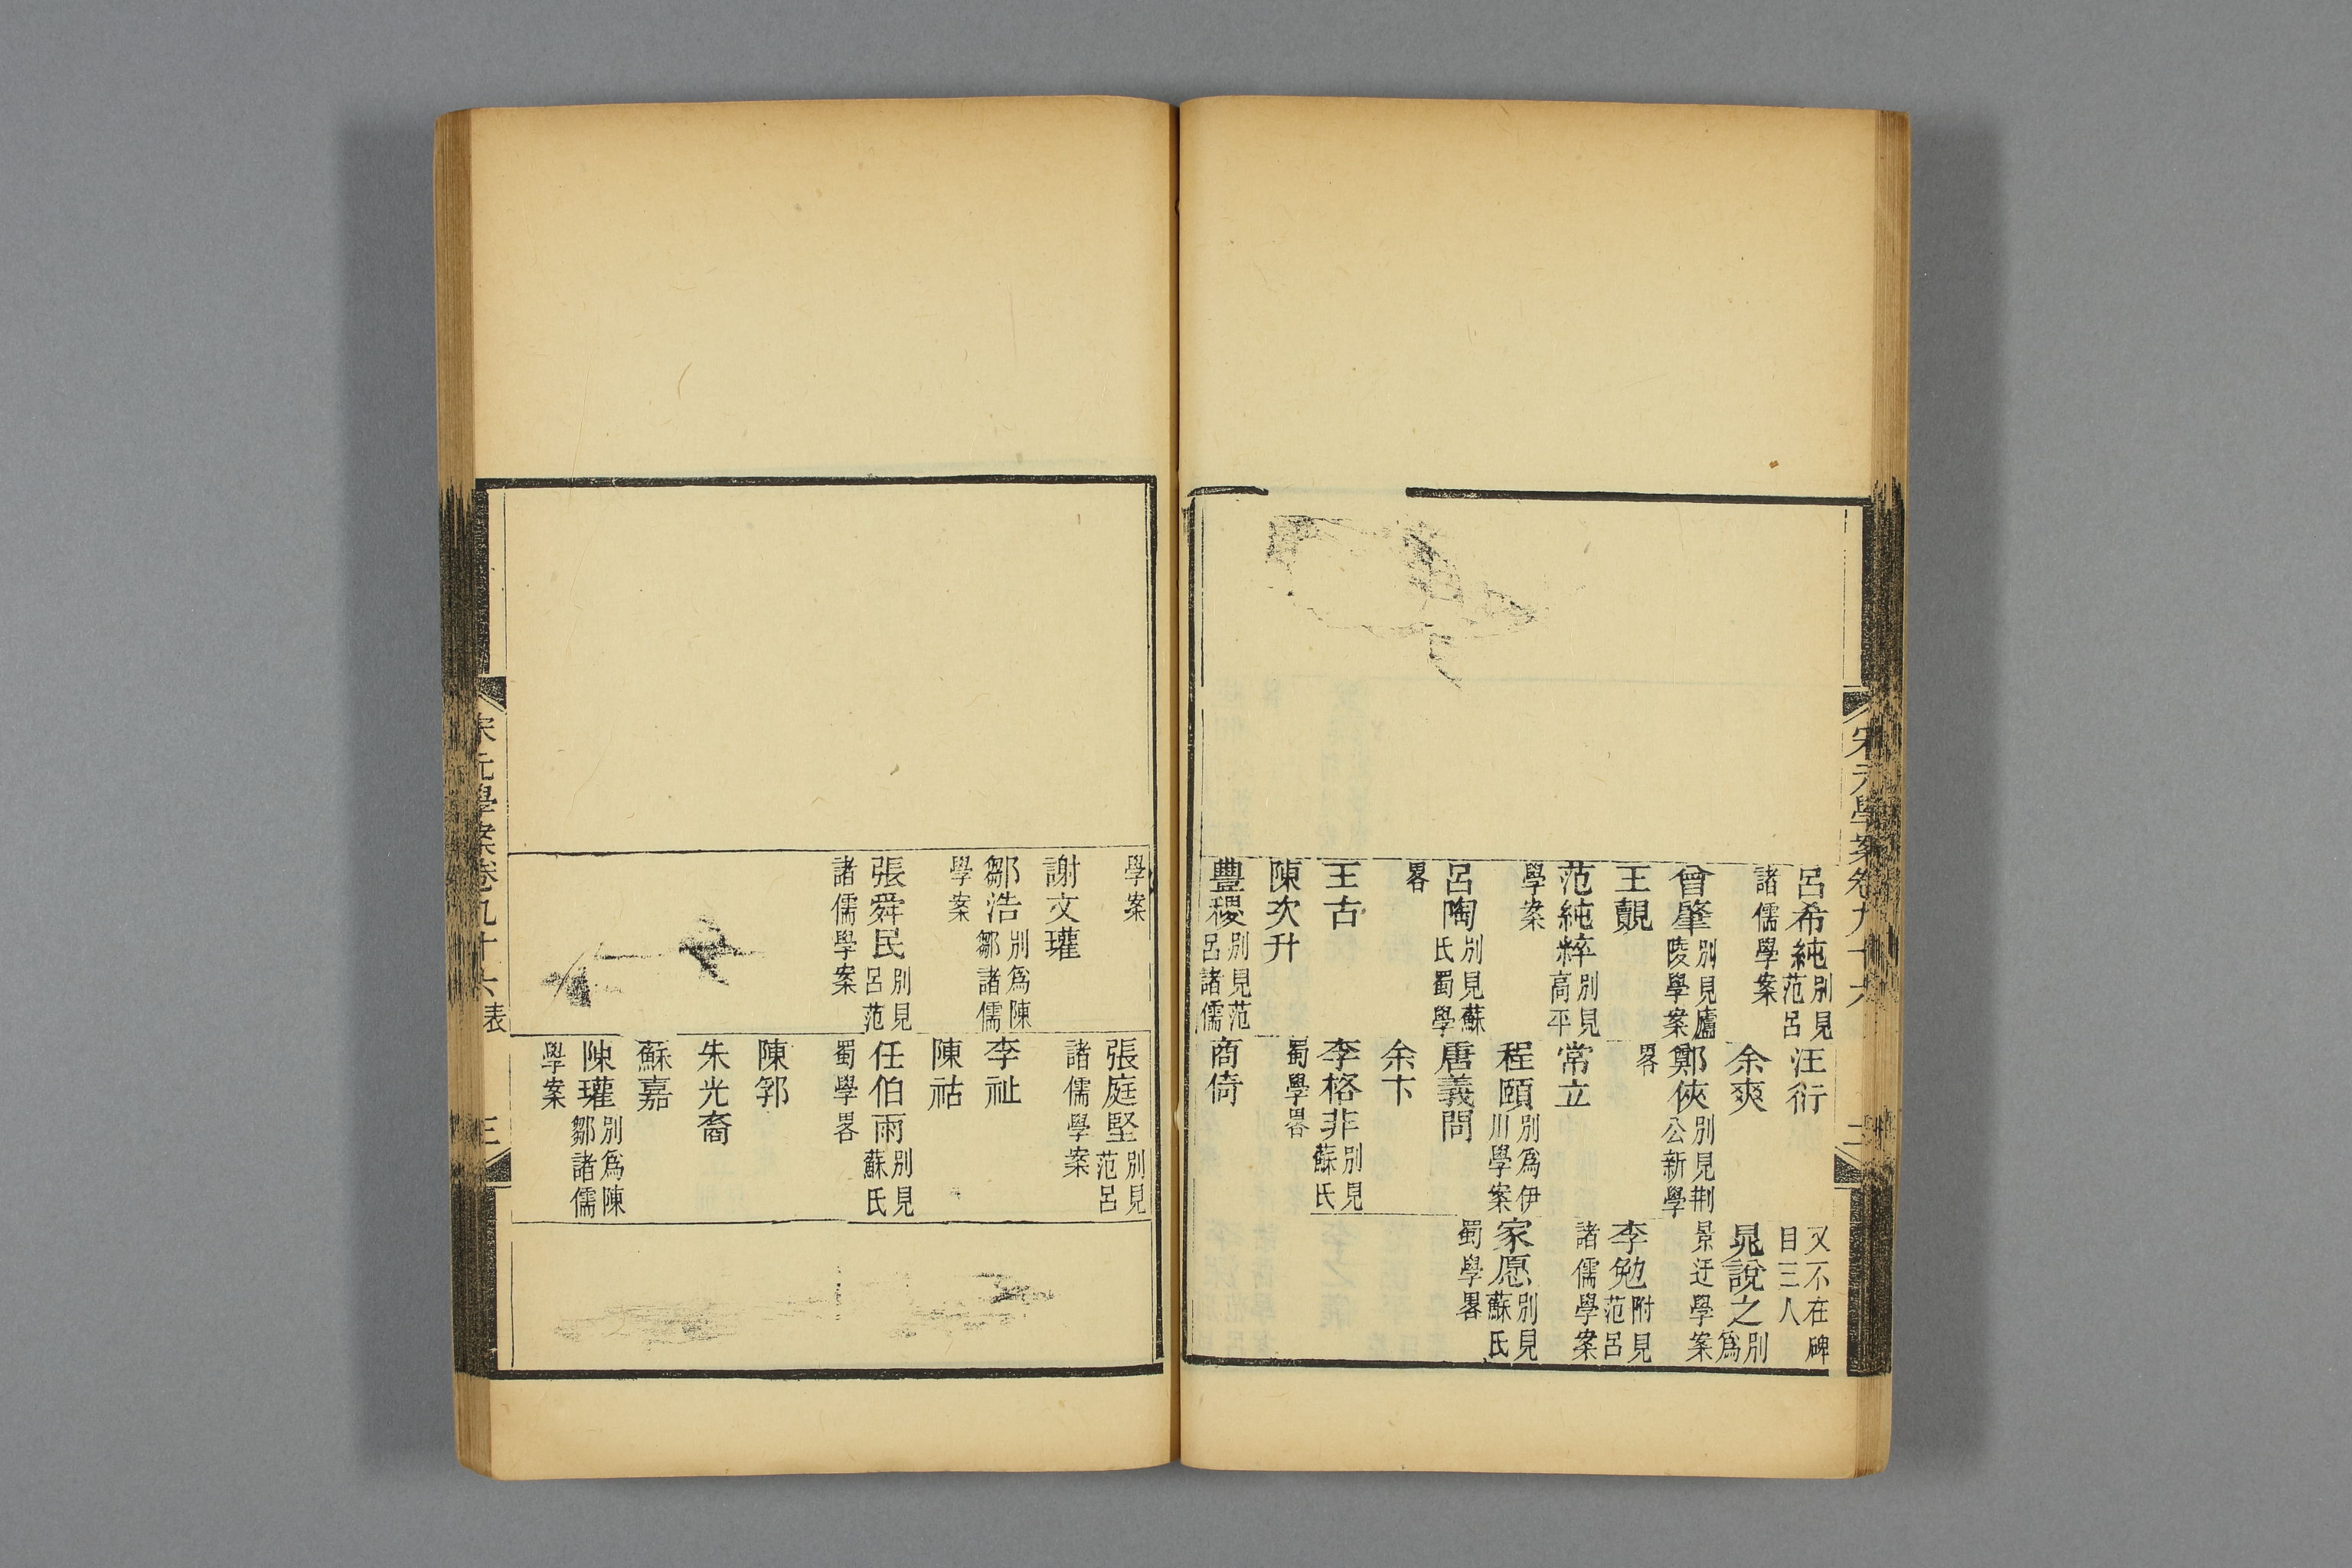 宋元學案卷九十六
二
呂希純別見范呂
諸儒學案
曾肇別見廬陵學案
王覿
范純粹別見高平
學案
呂陶別見蘇氏蜀學
畧
王古
陳次升
豐稷別見范呂諸儒
汪衍
余爽
鄭俠別見荆公新學
畧
常立
程頤別爲伊川學案
唐義問
余卞
李格非別見蘇氏
蜀學畧
商倚
又不在碑目三人
晁說之別爲
景迂學案
李勉附見范呂
諸儒學案
家愿別見蘇氏
蜀學畧
學案
謝文瓘
鄒浩別爲陳鄒諸儒
學案
張舜民別見呂范
諸儒學案
張庭堅別見范呂
諸儒學案
李祉
陳祐
任伯雨別見蘇氏
蜀學畧
陳郛
朱光裔
蘇嘉
陳瓘別爲陳鄒諸儒
學案
宋元學案卷九十六表
三